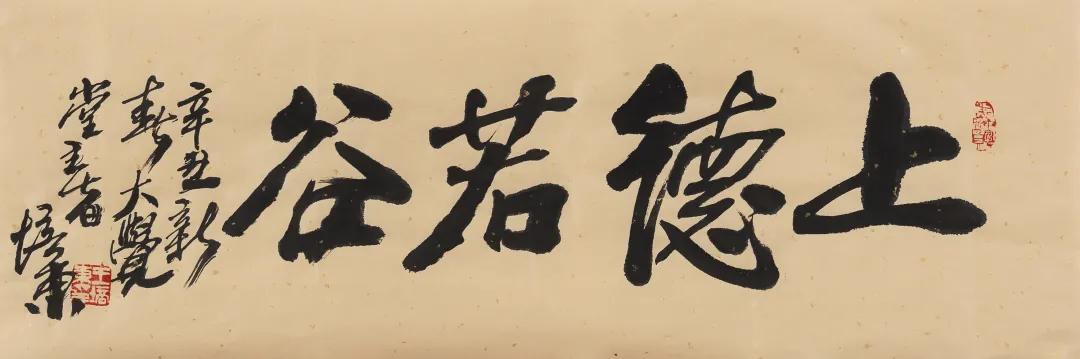 上德若谷
辛丑新
春大覺
堂主者
培